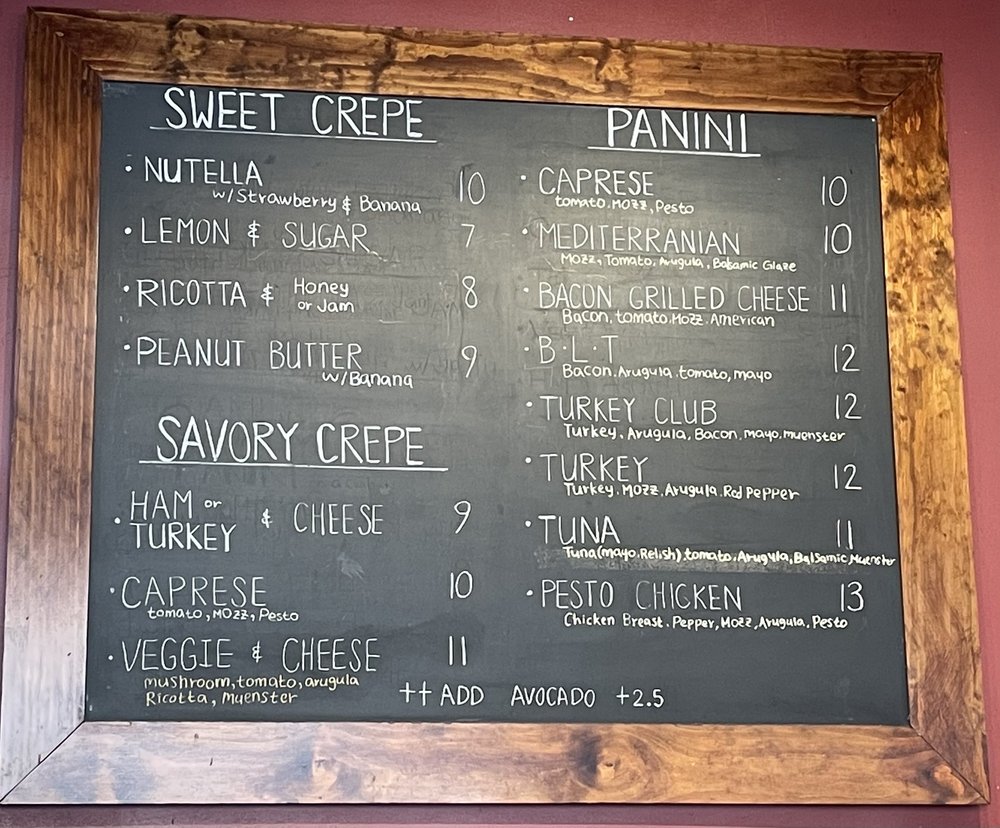 SWEET CREPE
• NUTELLA 10
w/Strawberry & Banana
• LEMON & SUGAR 7
• RICOTTA & Honey or Jam 8
• PEANUT BUTTER 9
w/Banana
SAVORY CREPE
• HAM or TURKEY & CHEESE 9
• CAPRESE 10
tomato, Mozz, Pesto
• VEGGIE & CHEESE 11
mushroom, tomato, arugula
Ricotta, Muenster
PANINI
• CAPRESE 10
tomato, Mozz, Pesto
• MEDITERRANIAN 10
Mozz, Tomato, Arugula, Balsamic Glaze
• BACON GRILLED CHEESE 11
Bacon, tomato, Mozz, American
• B·L·T 12
Bacon, Arugula, tomato, mayo
• TURKEY CLUB 12
Turkey, Arugula, Bacon, mayo, muenster
• TURKEY 12
Turkey, Mozz, Arugula, Red Pepper
• TUNA 11
Tuna(mayo, Relish) tomato, Arugula, Balsamic, Muenster
• PESTO CHICKEN 13
Chicken Breast, Pepper, Mozz, Arugula, Pesto
++ ADD AVOCADO +2.5